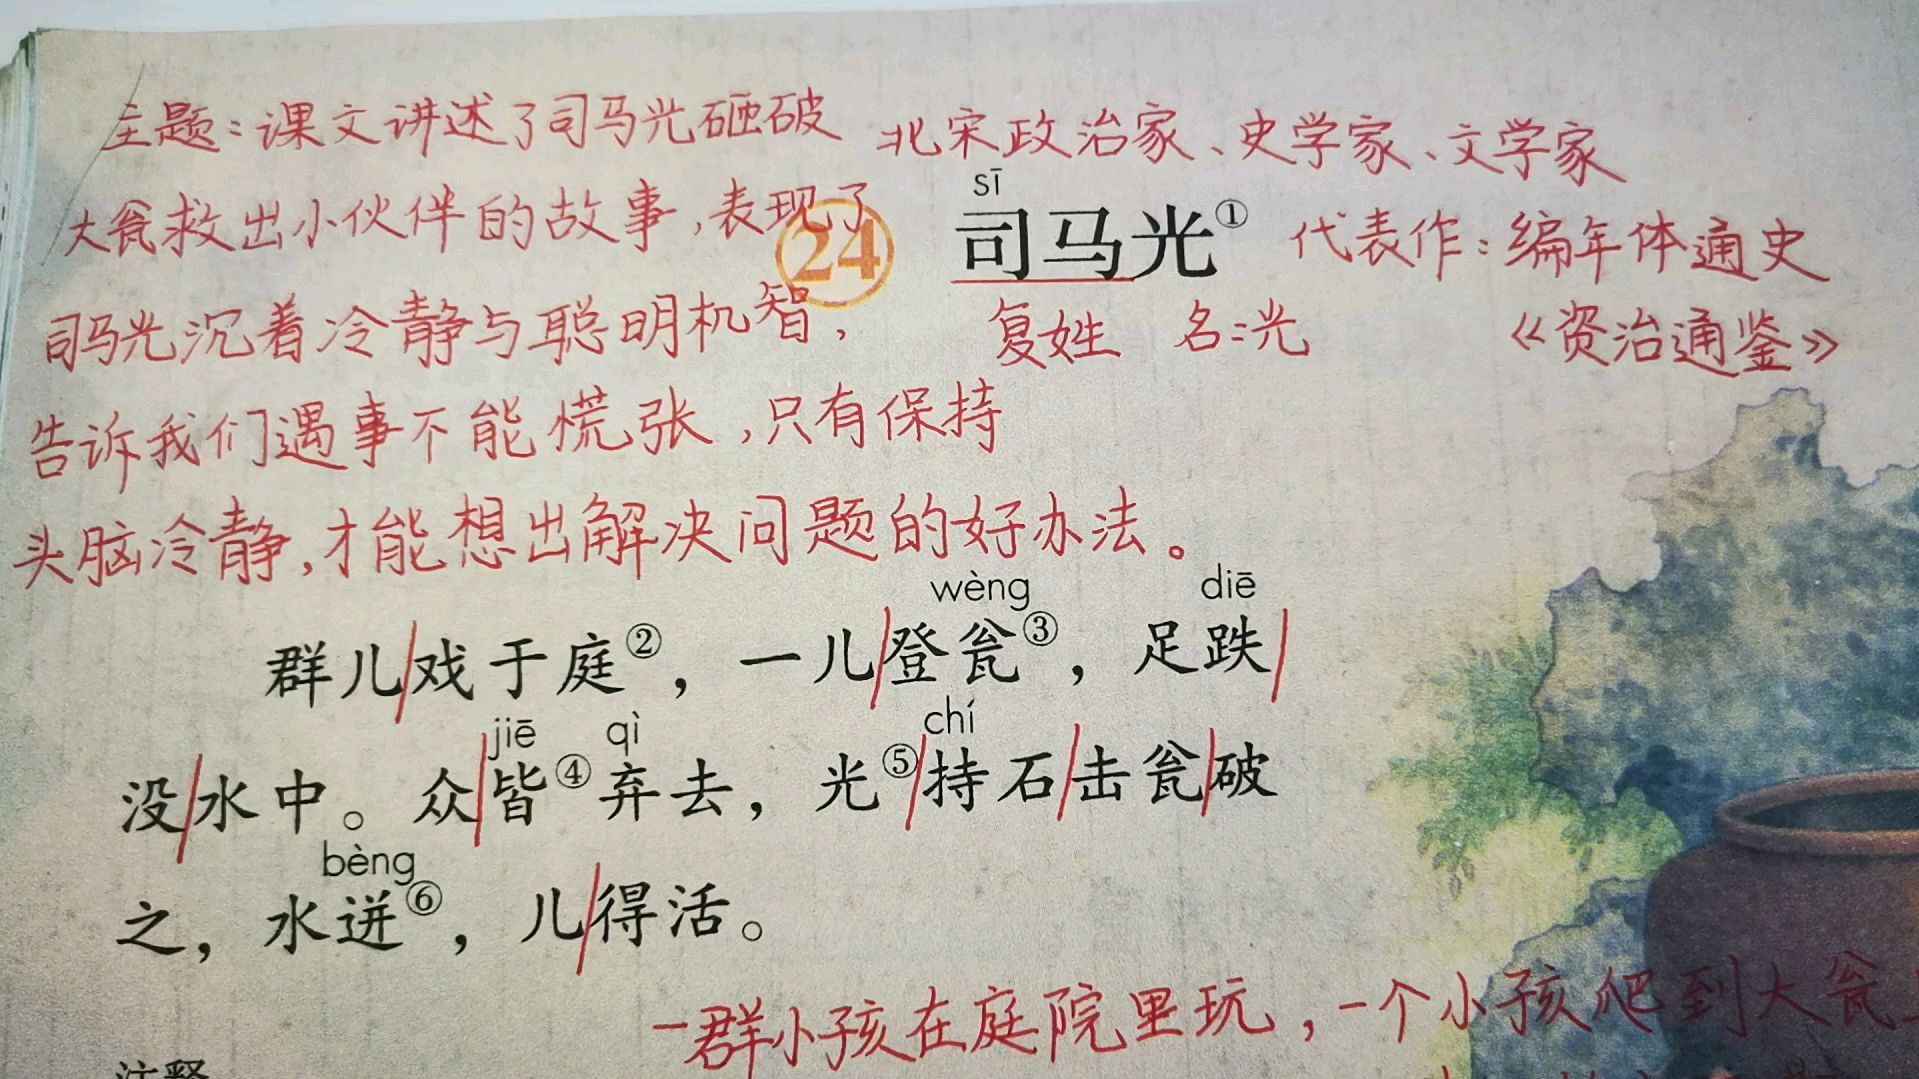 主题：课文讲述了司马光砸破
大瓮救出小伙伴的故事，表现了
司马光沉着冷静与聪明机智，
告诉我们遇事不能慌张，只有保持
头脑冷静，才能想出解决问题的好办法。
北宋政治家、史学家、文学家
sī
24 司马光①
代表作：编年体通史
《资治通鉴》
复姓 名：光
wèng diē
群儿/戏于庭②，一儿/登瓮③，足跌/
jiē qì chí
没/水中。众/皆④弃去，光⑤/持石/击瓮/破
bèng
之，水迸⑥，儿/得活。
一群小孩在庭院里玩，一个小孩爬到大瓮
注释